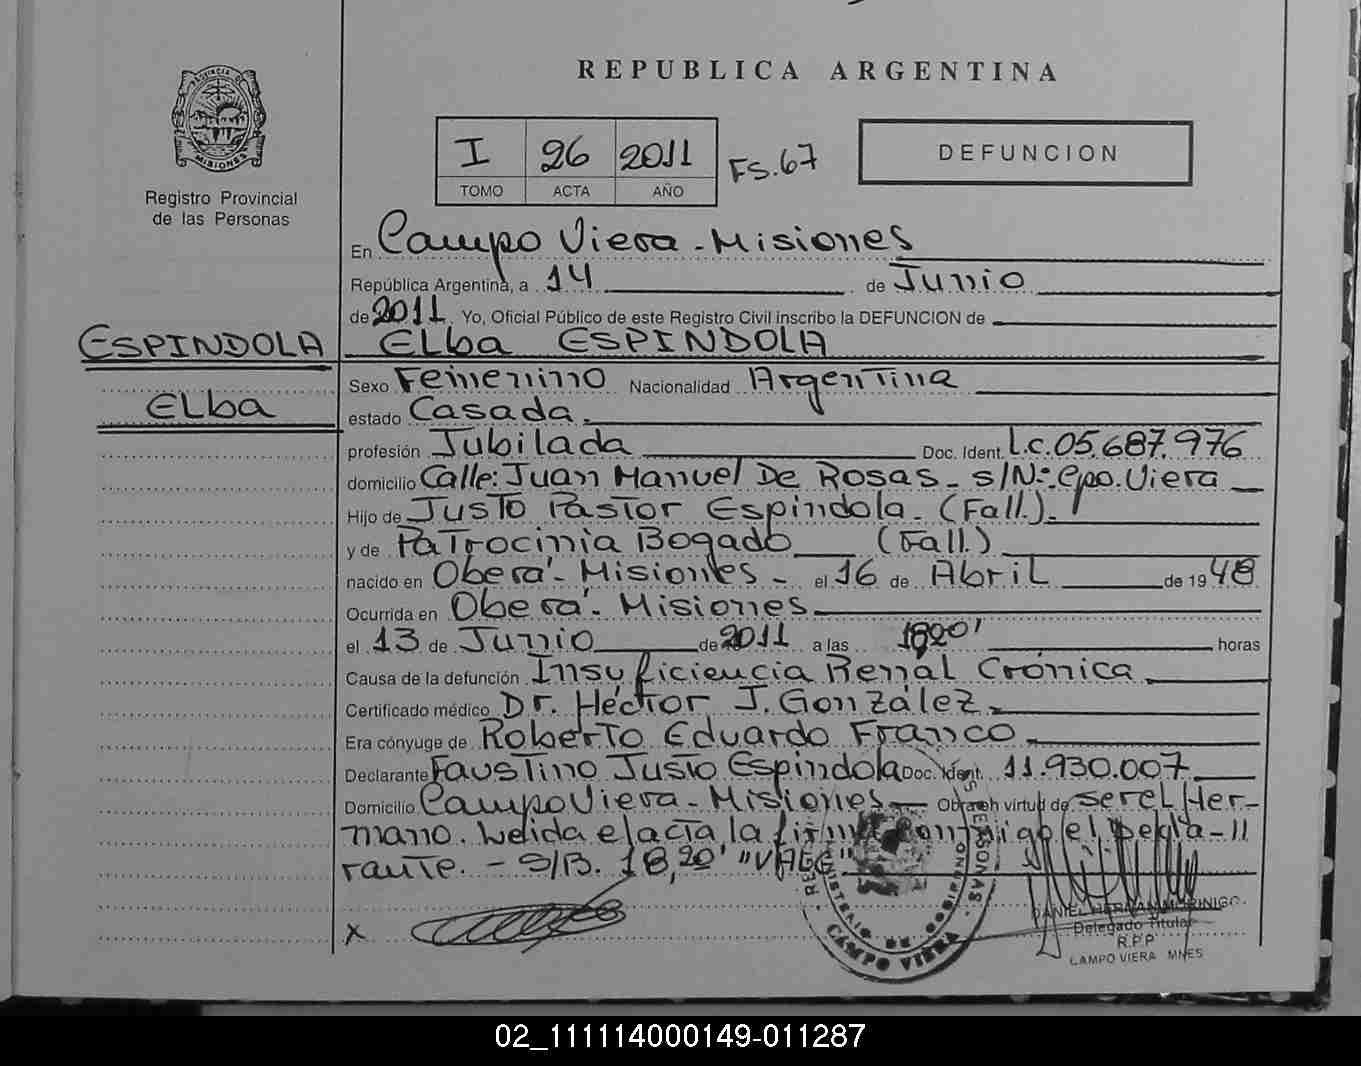 REPUBLICA ARGENTINA
PROVINCIA DE MISIONES
Registro Provincial
de las Personas
I 26 2011 FS.67
TOMO ACTA AÑO
DEFUNCION
En Campo Viera - Misiones
República Argentina, a 14 de Junio
de 2011 Yo, Oficial Público de este Registro Civil inscribo la DEFUNCION de
ESPINDOLA
Elba
Elba ESPINDOLA
Sexo Femenino Nacionalidad Argentina
estado Casada.
profesión Jubilada Doc. Ident. L.C.05.687.976
domicilio Calle: Juan Manuel De Rosas - s/Nº: Cpo. Viera
Hijo de Justo Pastor Espindola. (Fall.).
y de Patrocinia Bogado (Fall.)
nacido en Oberá - Misiones - el 16 de Abril de 1948
Ocurrida en Oberá - Misiones
el 13 de Junio de 2011 a las 1820' horas
Causa de la defunción Insuficiencia Renal Crónica
Certificado médico Dr. Héctor J. González
Era cónyuge de Roberto Eduardo Franco
Declarante Faustino Justo Espindola Doc. Ident. 11.930.007
Domicilio Campo Viera - Misiones Obra en virtud de ser el Her-
mano. Leida el acta la firma conmigo el decla-
rante. - S/B. 18,20' "VALE"
x
CAMPO VIERA
DANIEL HERNAN MORINIGO
Delegado Titular
R.P.P
CAMPO VIERA MNES
02_111114000149-011287